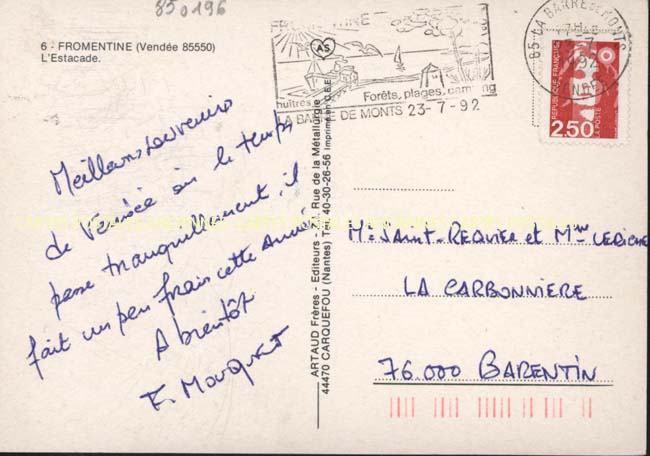 850196
6 - FROMENTINE (Vendée 85550)
L'Estacade.
FROMENTINE
huîtres
Forêts, plages, camping
LA BARRE DE MONTS 23-7-92
85 LA BARRE DE MONTS
REPUBLIQUE FRANÇAISE
2,50
LA POSTE
Meilleurs souvenirs
de Vendée où le temps
passe tranquillement, il
fait un peu frais cette année
A bientôt
ARTAUD Frères - Editeurs - Rue de la Métallurgie
44470 CARQUEFOU (Nantes) Tél. 40-30-26-56 Imprimé en C.E.E.
AS
Mr SAINT-REQUIER et Mme LERICHE
LA CARBONNIERE
76.000 BARENTIN